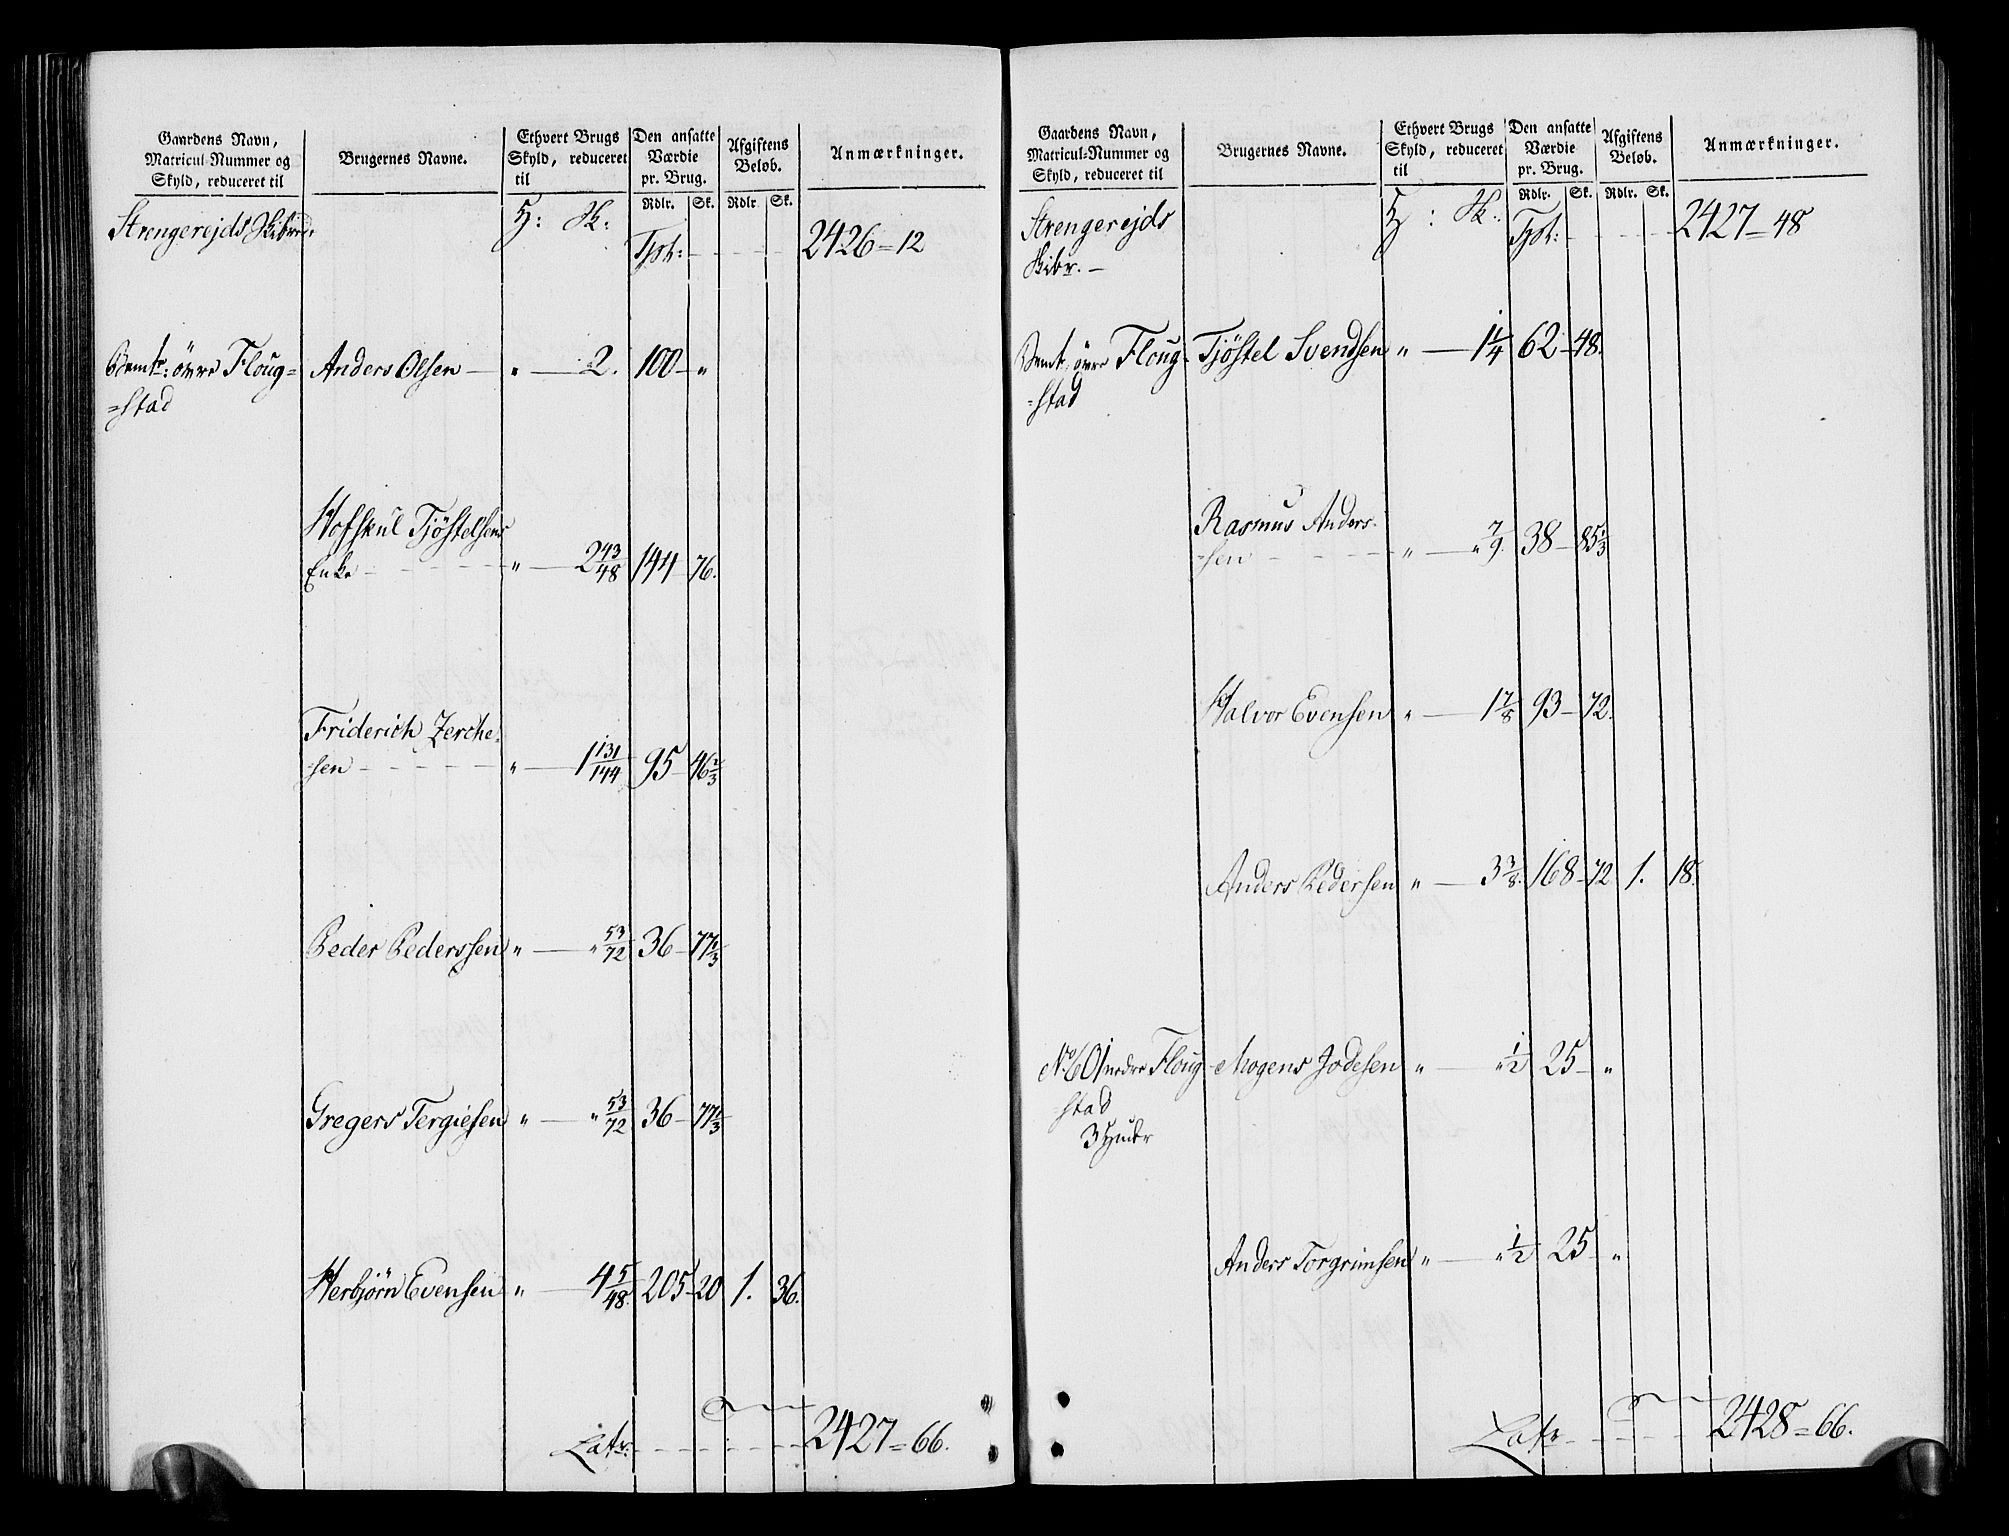 Gaardens Navn,
Matricul-Nummer og
Skyld, reduceret til
Brugernes Navne.
Ethvert Brugs
Skyld, reduceret
til
Den ansatte
Værdie
pr. Brug.
Afgiftens
Beløb.
Anmærkninger.
Rdlr. Sk. Rdlr. Sk.
Strengerejds Skibr. H: Sk: Tpt: 2426=12
Bemte: övre Floug= Anders Olsen " 2. 100 "
=stad
Hofskul Tjöstelsens
Enke " 2 43/48 144 76.
Friderich Zerche=
=sen " 1 131/144 95 46 2/3
Peder Pederssen " " 53/72 36 77 1/3
Gregers Tergiesen " " 53/72 36 77 1/3
Herbjørn Evensen " 4 5/48 205 20 1. 36.
Latr. 2427=66.
Gaardens Navn,
Matricul-Nummer og
Skyld, reduceret til
Brugernes Navne.
Ethvert Brugs
Skyld, reduceret
til
Den ansatte
Værdie
pr. Brug.
Afgiftens
Beløb.
Anmærkninger.
Rdlr. Sk. Rdlr. Sk.
Strengerejds H: Sk: Tpt: 2427=48
Skibr.
Bemte. övre Floug= Tjöstel Svendsen " 1 1/4 62 48.
=stad
Rasmus Anders=
=sen " " 7/9. 38 85 1/3
Halvor Evensen " 1 7/8 93 72.
Anders Pedersen " 3 3/8. 168 72 1. 18.
No. 601 nedre Floug= Mogens Jodesen " " 1/2 25 "
=stad
3 Huder
Anders Torgrimsen " " 1/2 25 "
Latr 2428=66.